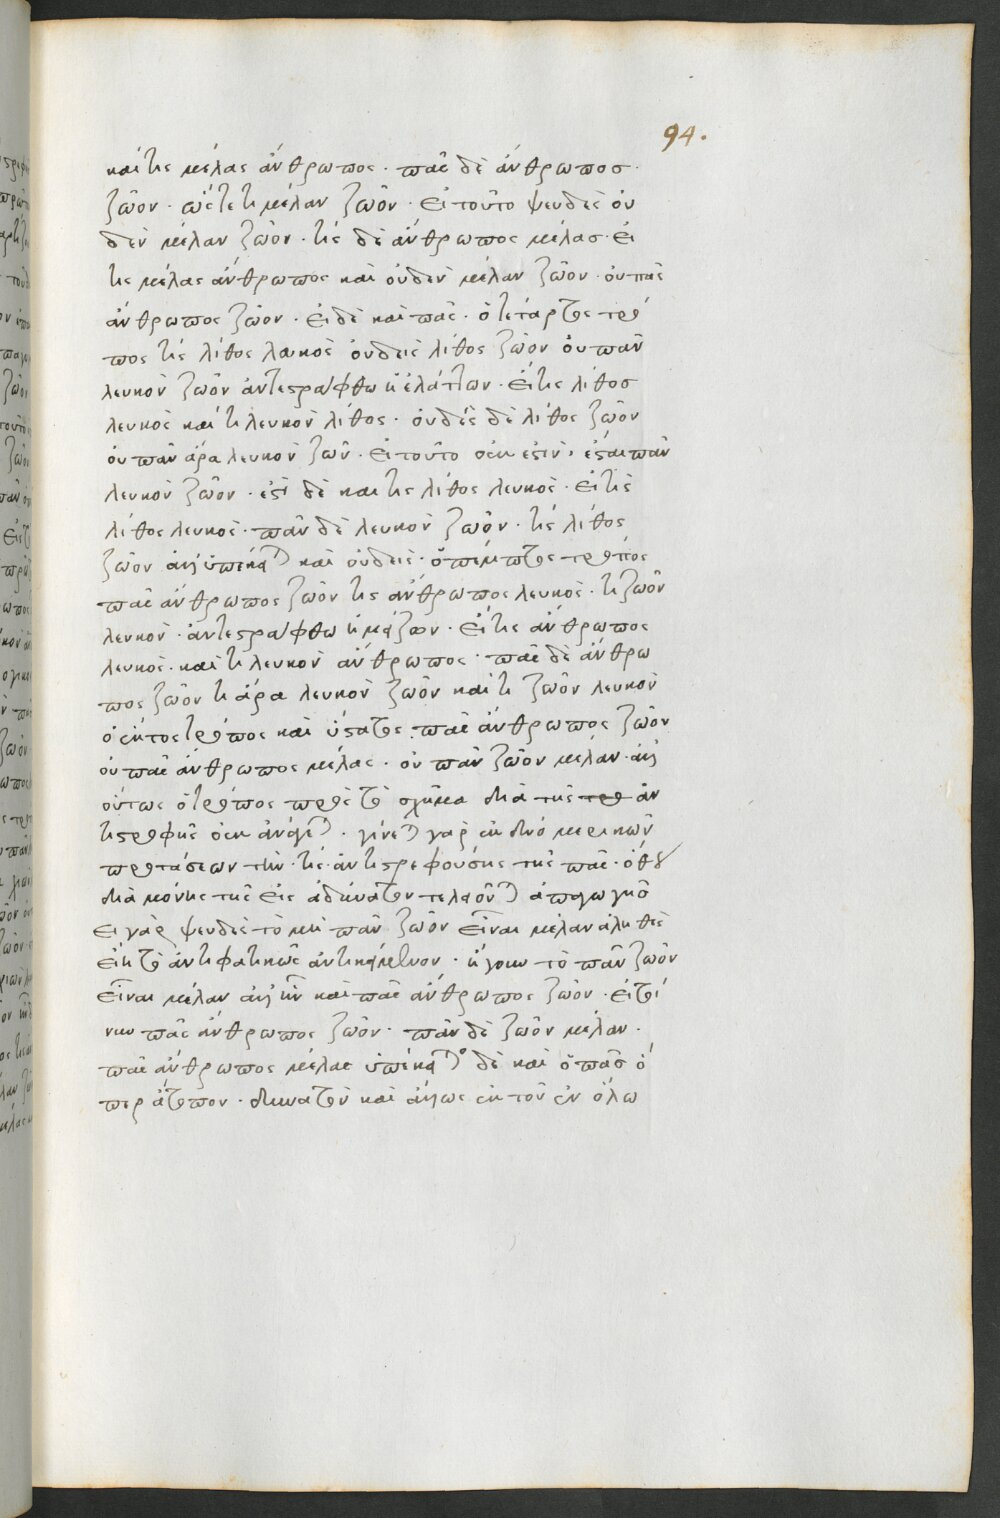 94.
καί τις μέλας ἄνθρωπος · πᾶς δὲ ἄνθρωπος ·
ζῶον · ὥστε τὶ μέλαν ζῶον · εἰ τοῦτο ψευδὲς οὐ
δὲν μέλαν ζῶον · τὶς δὲ ἄνθρωπος μέλας · εἰ
τις μέλας ἄνθρωπος καὶ οὐδὲν μέλαν ζῶον · οὐ πᾶς
ἄνθρωπος ζῶον · εἰ δὲ καὶ πᾶς · ὁ τέταρτος τρό
πος τὶς λίθος λευκὸς οὐδεὶς λίθος ζῶον οὐ πᾶν
λευκὸν ζῶον ἀντεστράφθω ἡ ἐλάττων · εἴ τις λίθος
λευκὸς καί τι λευκὸν λίθος · οὐδεὶς δὲ λίθος ζῶον
οὐ πᾶν ἄρα λευκὸν ζῶον · εἰ τοῦτο οὐκ ἔστιν · ἔσται πᾶν
λευκὸν ζῶον · ἔστι δὲ καί τις λίθος λευκός · εἴ τις
λίθος λευκός · πᾶν δὲ λευκὸν ζῶον · τὶς λίθος
ζῶον ἀλλ' ὑπέκειτο καὶ οὐδείς · ὁ πέμπτος τρόπος
πᾶς ἄνθρωπος ζῶον τὶς ἄνθρωπος λευκός · τὶ ζῶον
λευκόν · ἀντεστράφθω ἡ μείζων · εἴ τις ἄνθρωπος
λευκός · καί τι λευκὸν ἄνθρωπος · πᾶς δὲ ἄνθρω
πος ζῶον τὶ ἄρα λευκὸν ζῶον καί τι ζῶον λευκὸν
ὁ ἕκτος τρόπος καὶ ὕστατος · πᾶς ἄνθρωπος ζῶον
οὐ πᾶς ἄνθρωπος μέλας · οὐ πᾶν ζῶον μέλαν · ἀλλ'
οὗτος ὁ τρόπος πρὸς τὸ σχῆμα διὰ τῆς ἀν
τιστροφῆς οὐκ ἀνάγεται · γίνεται γὰρ ἐκ δύο μερικῶν
προτάσεων τῶν · τῆς ἀντιστρεφούσης τῆς πᾶς · ὅθεν
διὰ μόνης τῆς εἰς ἀδύνατον τελειοῦται ἀπαγωγῆς
εἰ γὰρ ψευδὲς τὸ μὴ πᾶν ζῶον εἶναι μέλαν ἀληθὲς
εἴη τὸ ἀντιφατικῶς ἀντικείμενον · ἤγουν τὸ πᾶν ζῶον
εἶναι μέλαν ἀλλ' ἦν καὶ πᾶς ἄνθρωπος ζῶον · εἰ τοί
νυν πᾶς ἄνθρωπος ζῶον · πᾶν δὲ ζῶον μέλαν ·
πᾶς ἄνθρωπος μέλας ὑπέκειτο δὲ καὶ οὐ πᾶς ὅ
περ ἄτοπον · δυνατὸν καὶ ἄλλως ἐκ τῶν ἐν ὅλω